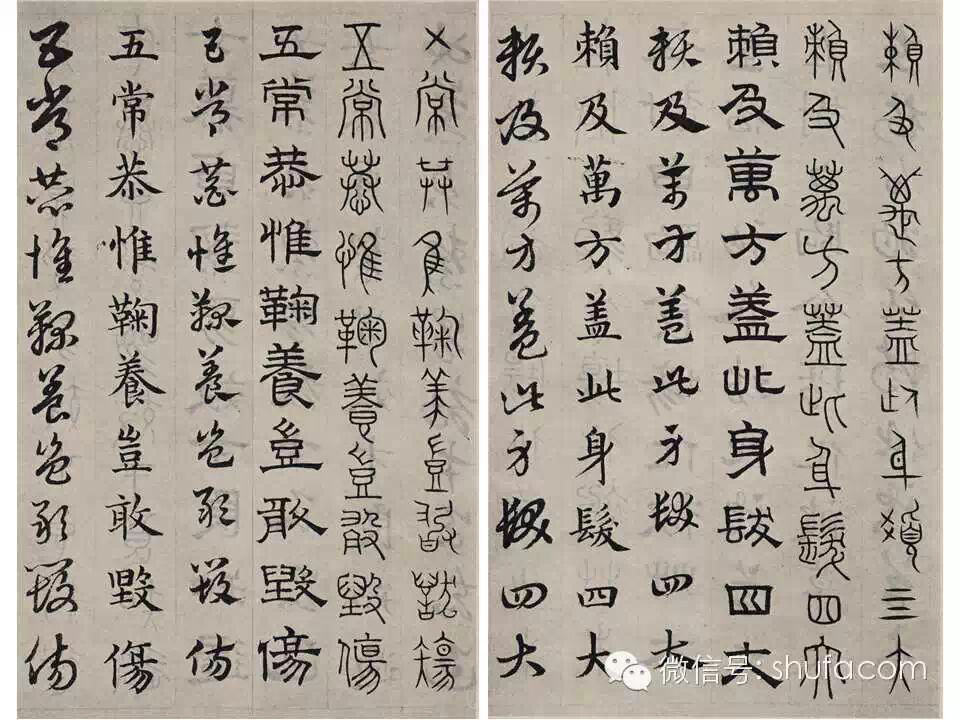 賴及萬方蓋此身髮四大
賴及萬方蓋此身髮四大
賴及萬方蓋此身髮四大
賴及萬方蓋此身髮四大
賴及萬方蓋此身髮四大
賴及萬方蓋此身髮四大
五常恭惟鞠養豈敢毀傷
五常恭惟鞠養豈敢毀傷
五常恭惟鞠養豈敢毀傷
五常恭惟鞠養豈敢毀傷
五常恭惟鞠養豈敢毀傷
五常恭惟鞠養豈敢毀傷
微信号: shufacom